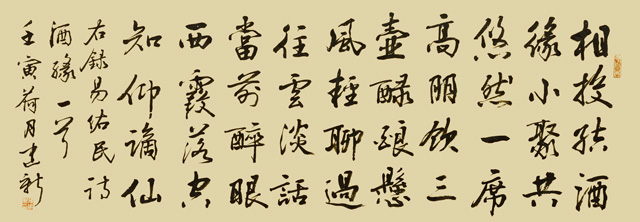 相投結酒
緣小聚共
悠然一席
高朋飲三
壺醁釀懸
風輕聊過
往雲淡話
當前醉眼
西霞落
知仰謫仙
右錄易佑民詩
酒緣一首
壬寅荷月建新